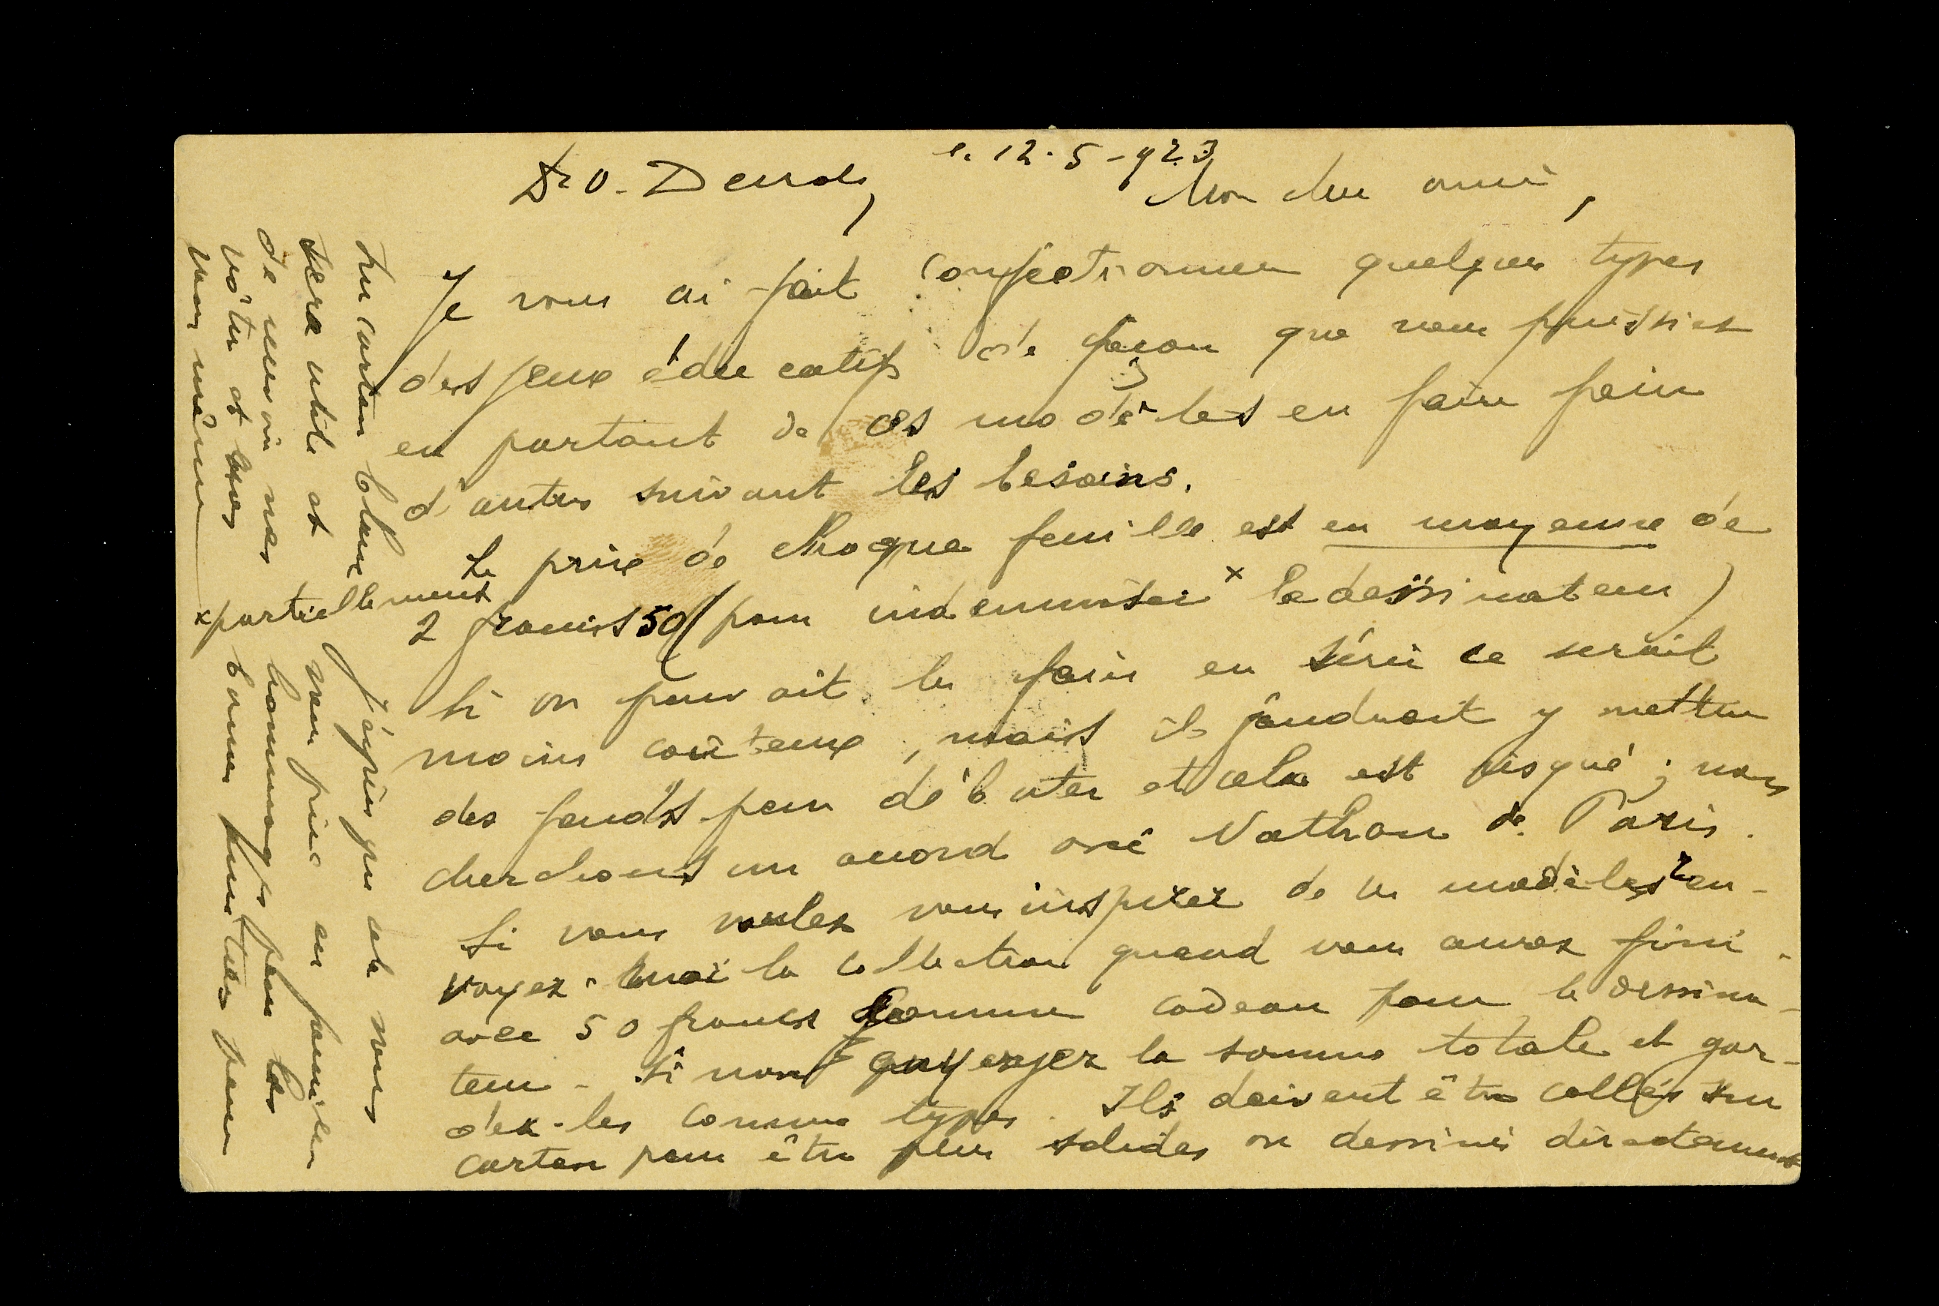 Dr O. Decroly,
le 12-5-923
Mon cher ami,
Je vous ai fait confectionner quelques types
des jeux éducatifs de façon que vous puissiez
en partant de ces modèles en faire faire
d'autres suivant les besoins.
Le prix de chaque feuille est en moyenne de
2 francs 50 (pour indemniser x le dessinateur)
Si on pouvait les faire en série ce serait
moins coûteux, mais il faudrait y mettre
des fonds pour débuter et cela est risqué; nous
cherchons un accord avec Nathan de Paris.
Si vous voulez vous inspirer de ces modèles ren-
voyez-moi la collection quand vous aurez fini
avec 50 francs comme cadeau pour le dessina-
teur - Si non envoyez la somme totale et gar-
dez-les comme types. Ils doivent être collés sur
carton pour être plus solides ou dessinés directement
sur carton blanc
x partiellement
J'espère que cela vous
sera utile et
vous prie en particulier
de recevoir mes
hommages pour les
vôtres et mes
bonnes amitiés pour
vous même